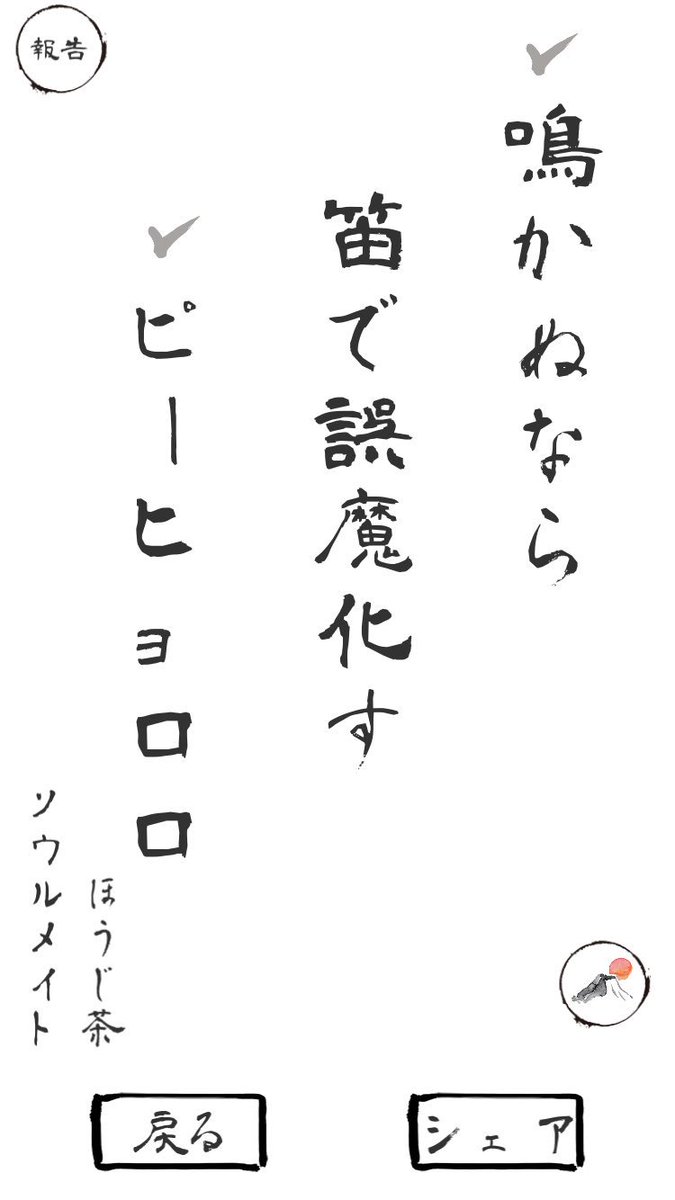 報告
鳴かぬなら
笛で誤魔化す
ピーヒョロロ
ほうじ茶
ソウルメイト
戻る
シェア